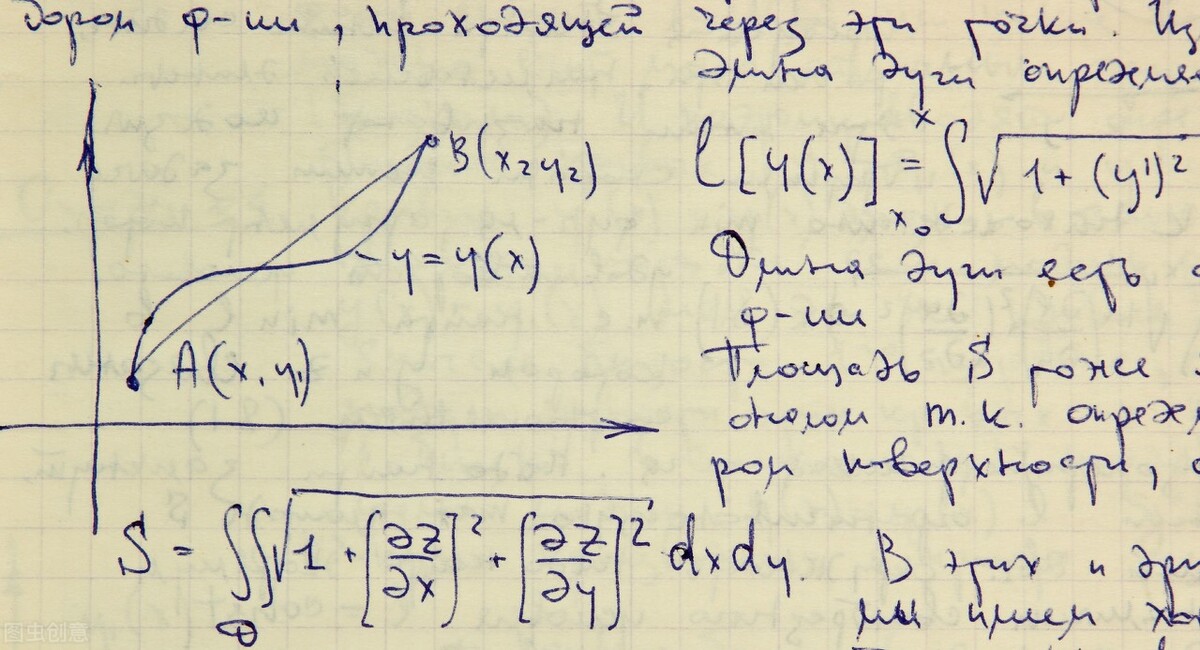 ф-ии, проходящей через эти точки. Из
Длина дуги определя
B(x₂y₂)
l[y(x)] = ∫ₓ₀ˣ √1+(y')²
y=y(x)
Длина дуги есть
ф-ии
A(x,y₁)
Площадь S тоже
оналом т.к. определ
рой поверхности,
S = ∬_D √1+[∂z/∂x]²+[∂z/∂y]² dxdy. В этих и
мы имеем
图虫创意